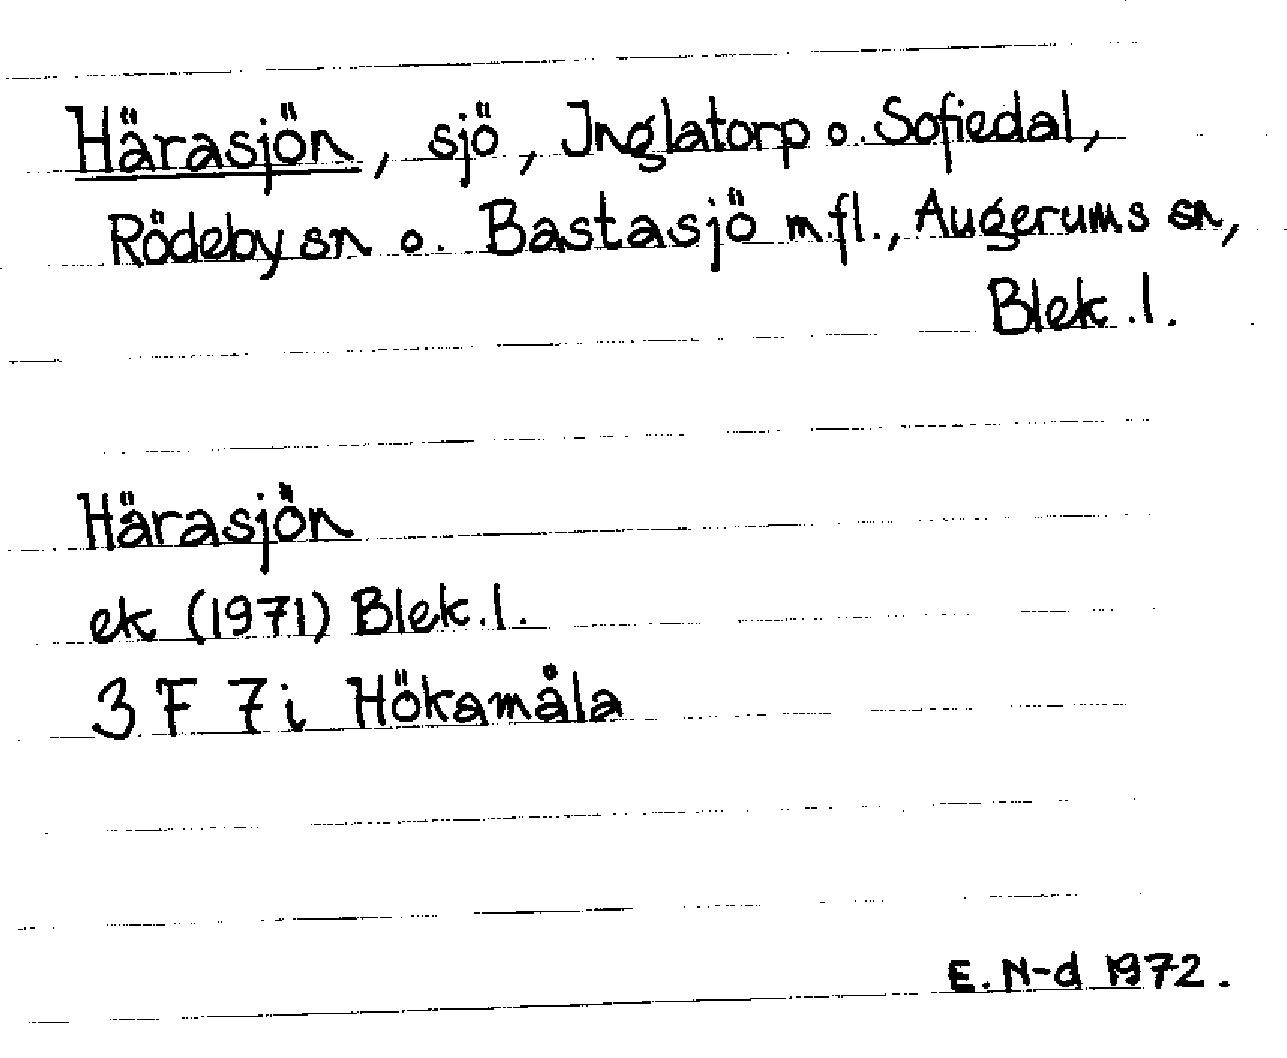 Härasjön, sjö, Inglatorp o. Sofiedal,
Rödeby sn o. Bastasjö m.fl., Augerums sn,
Blek.l.
Härasjön
ek (1971) Blek.l.
3 F 7i Hökamåla
E. N-d 1972.